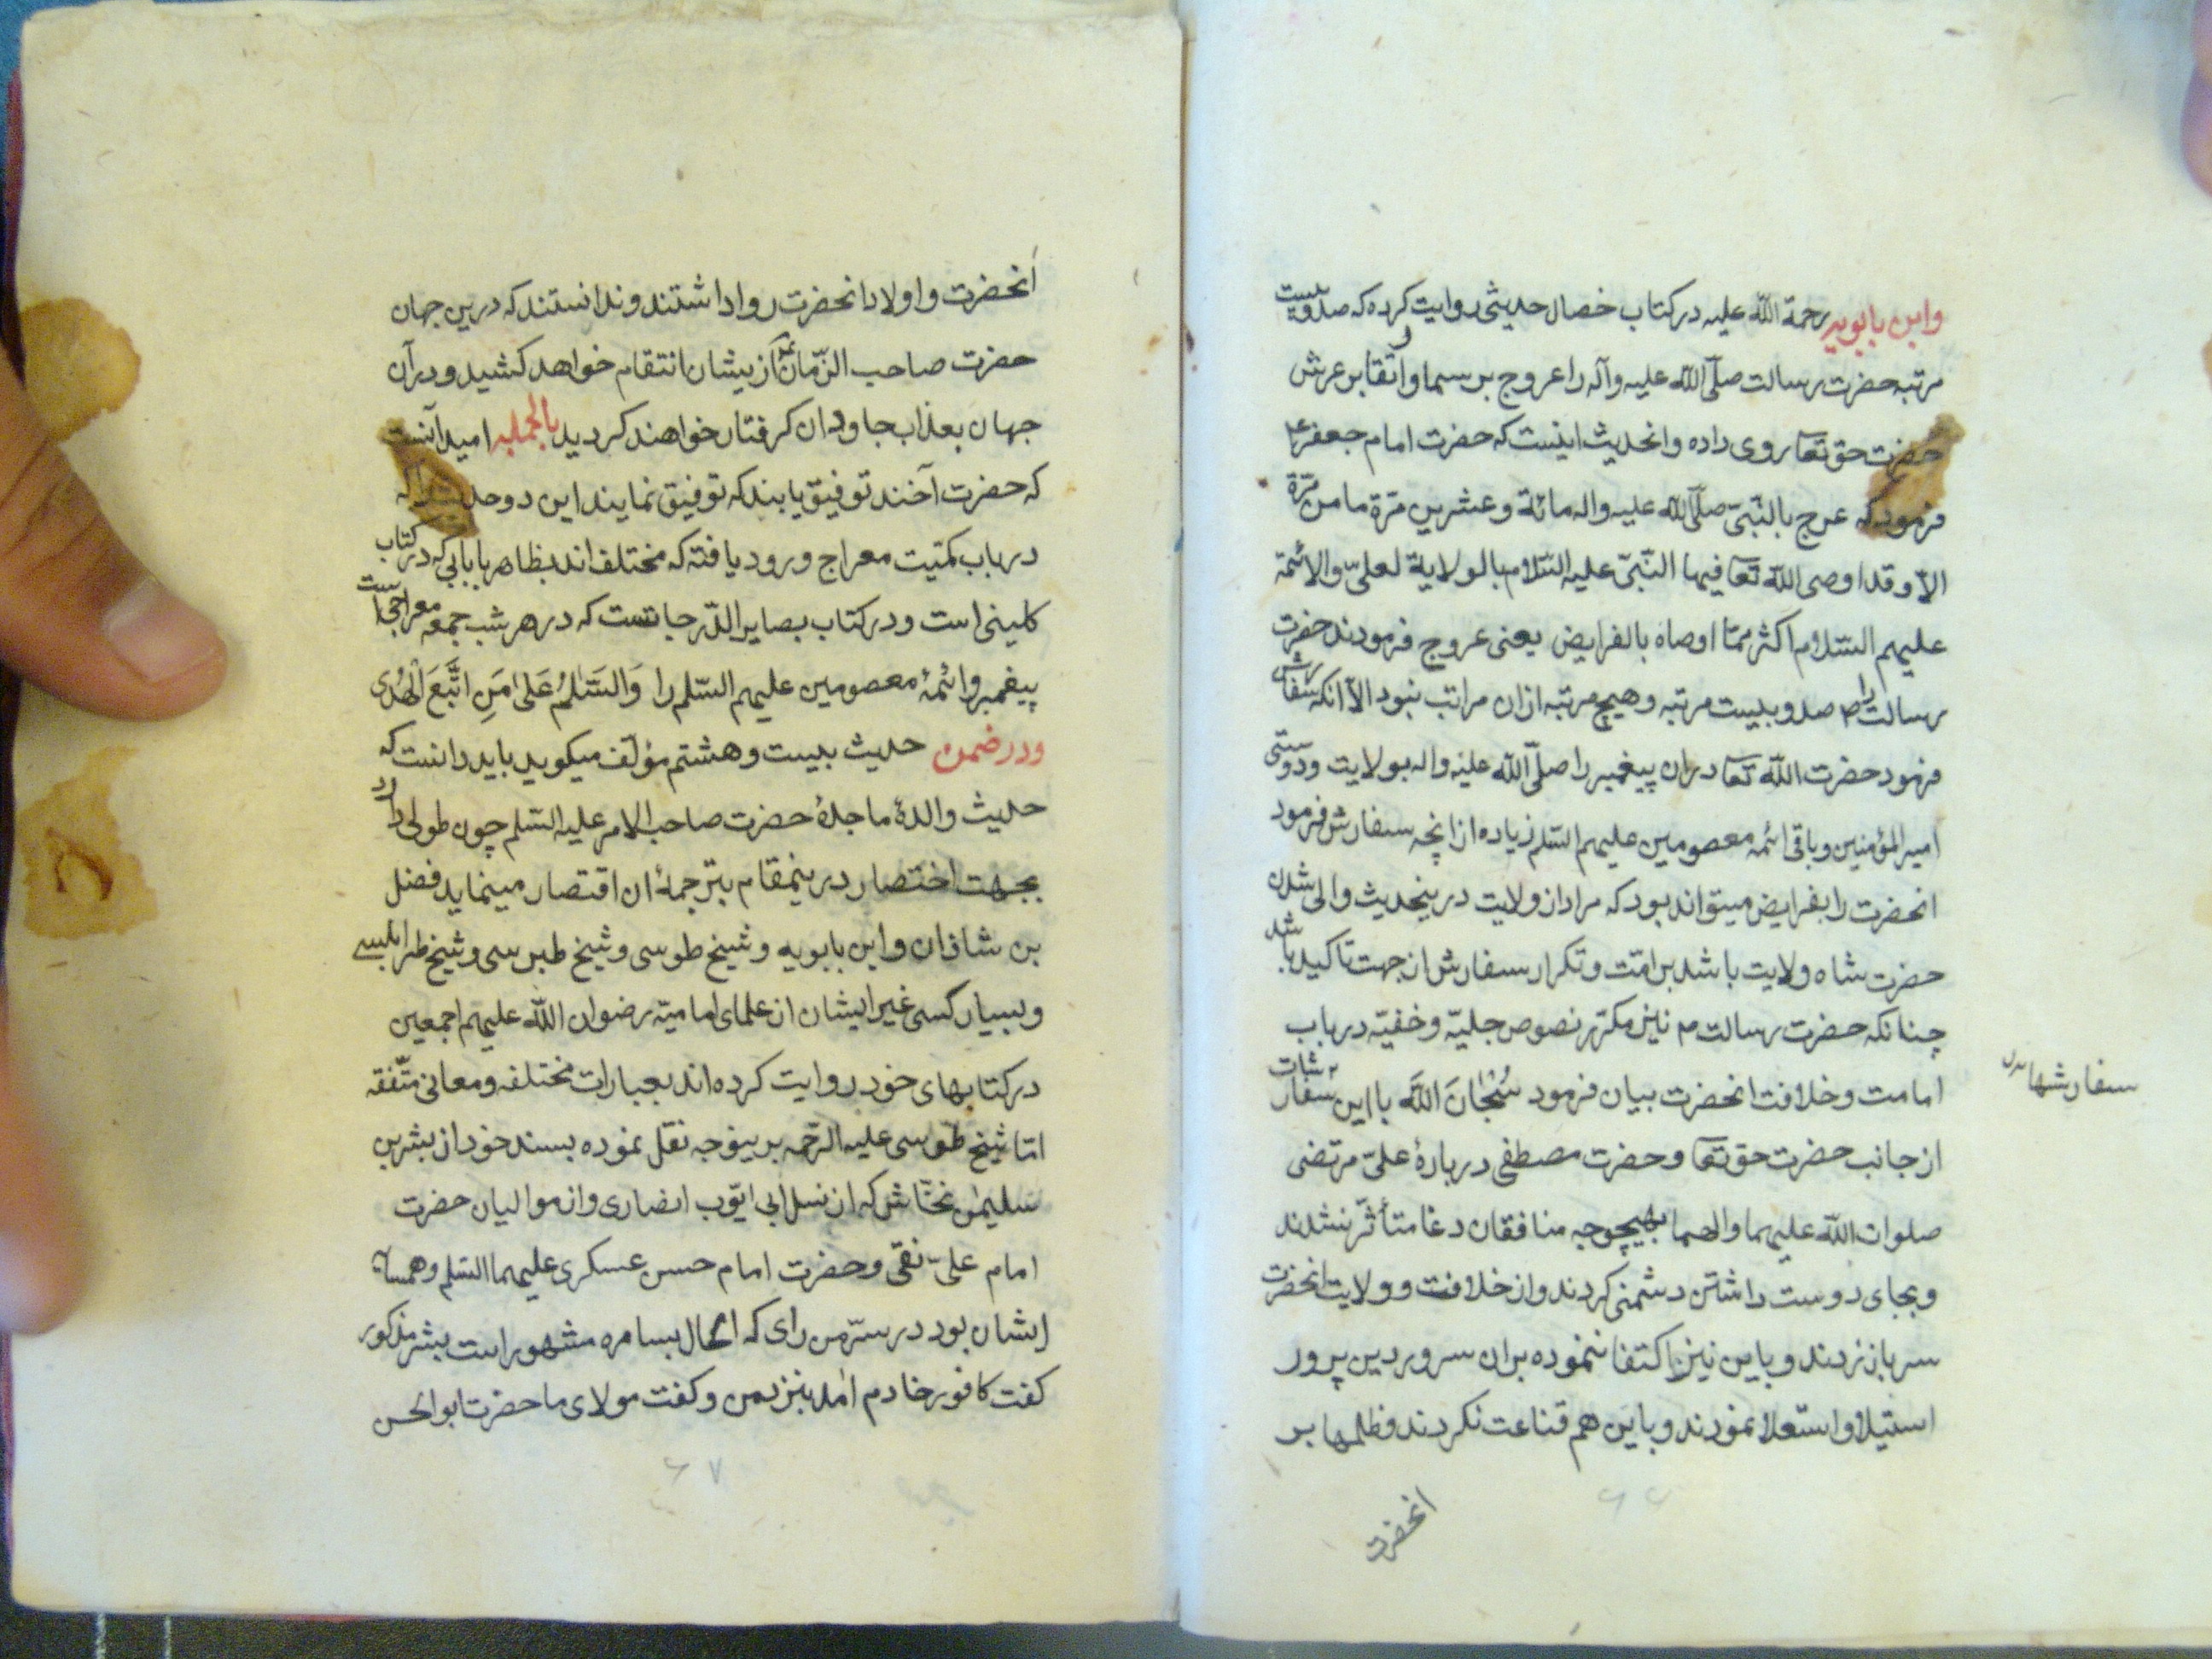 وابن بابویه رحمة الله علیه در کتاب خصال حدیثی روایت کرده که صد و بیست
مرتبه حضرت رسالت صلّی الله علیه وآله را عروج بر سما و اتقا بر عرش
حضرت حق تعا روی داده وانحدیث اینست که حضرت امام جعفر ع
فرمود که عرج بالنّبیّ صلّی الله علیه واله مائة وعشرین مرّة ما من مرّة
الّا وقد اوصی الله تعا فیها النّبیّ علیه السّلام بالولایة لعلیّ والائمّة
علیهم السّلام اکثر ممّا اوصاه بالفرایض یعنی عروج فرمودند حضرت
رسالت را ص صد وبیست مرتبه وهیچ مرتبه ازان مراتب نبود الّا انکه سفارش
فرمود حضرت الله تعا دران پیغمبر را صلّی الله علیه واله بولایت ودوستی
امیرالمؤمنین وباقی ائمّه معصومین علیهم السّلم زیاده از انچه سفارش فرمود
انحضرت را بفرایض میتواند بود که مراد از ولایت درینحدیث والی شدن
حضرت شاه ولایت باشد بر امّت وتکرار سفارش از جهت تاکید باشد
چنانکه حضرت رسالت م نیز مکرّر نصوص جلیّه وخفیّه در باب
امامت وخلافت انحضرت بیان فرمود سُبْحانَ اللَّه با این سفارشات
سفارشها
از جانب حضرت حق تعا وحضرت مصطفی در بارهٔ علیّ مرتضی
صلوات الله علیهما والهما بهیچوجه منافقان دغا متأثّر نشدند
وبجای دوست داشتن دشمنی کردند واز خلافت وولایت انحضرت
سر باز زدند وباین نیز اکتفا ننموده بران سرور دین پرور
استیلا واستعلا نمودند وباین هم قناعت نکردند وظلمها بر
انحضرت
۶۶
اَنحضرت واولاد انحضرت روا داشتند وندانستند که درین جهان
حضرت صاحب الزّمان از یشان انتقام خواهد کشید ودر آن
جهان بعذاب جاودان کرفتار خواهند کردید بالجمله امید آنست
که حضرت آخند توفیق یابند که توفیق نمایند این دو حدیث را که
در باب کمّیت معراج ورود یافته که مختلف اند بظاهر با بابی که در کتاب
کلینی است ودر کتاب بصایر الدّرجات است که در هر شب جمعه معراجی است
پیغمبر وائمّهٔ معصومین علیهم السّلم را وَالسَّلٰمُ عَلیٰ مَنِ اتَّبَعَ الْهُدیٰ
ودر ضمن حدیث بیست وهشتم مؤلّف میکوید باید دانست که
حدیث والدهٔ ماجدهٔ حضرت صاحب الامر علیه السّلم چون طولی دارد
بجهت اختصار درینمقام بترجمهٔ ان اقتصار مینماید فضل
بن شاذان وابن بابویه وشیخ طوسی وشیخ طبرسی وشیخ طرابلسی
وبسیار کسی غیر ایشان از علمای امامیّه رضوان الله علیهم اجمعین
در کتابهای خود روایت کرده اند بعبارات مختلفه ومعانی متّفقه
امّا شیخ طوسی علیه الرّحمه بر ینوجه نقل نموده بسند خود از بشر بن
سلیمٰن نخّاش که از نسل ابی ایّوب انصاری واز موالیان حضرت
امام علی نقی وحضرت امام حسن عسکری علیهما السّلم وهمسایه
ایشان بود در سرّ من رای که الحال بسامره مشهور است بشر مذکور
کفت کافور خادم امد بنزد من وکفت مولای ما حضرت ابو الحسن
۶۷